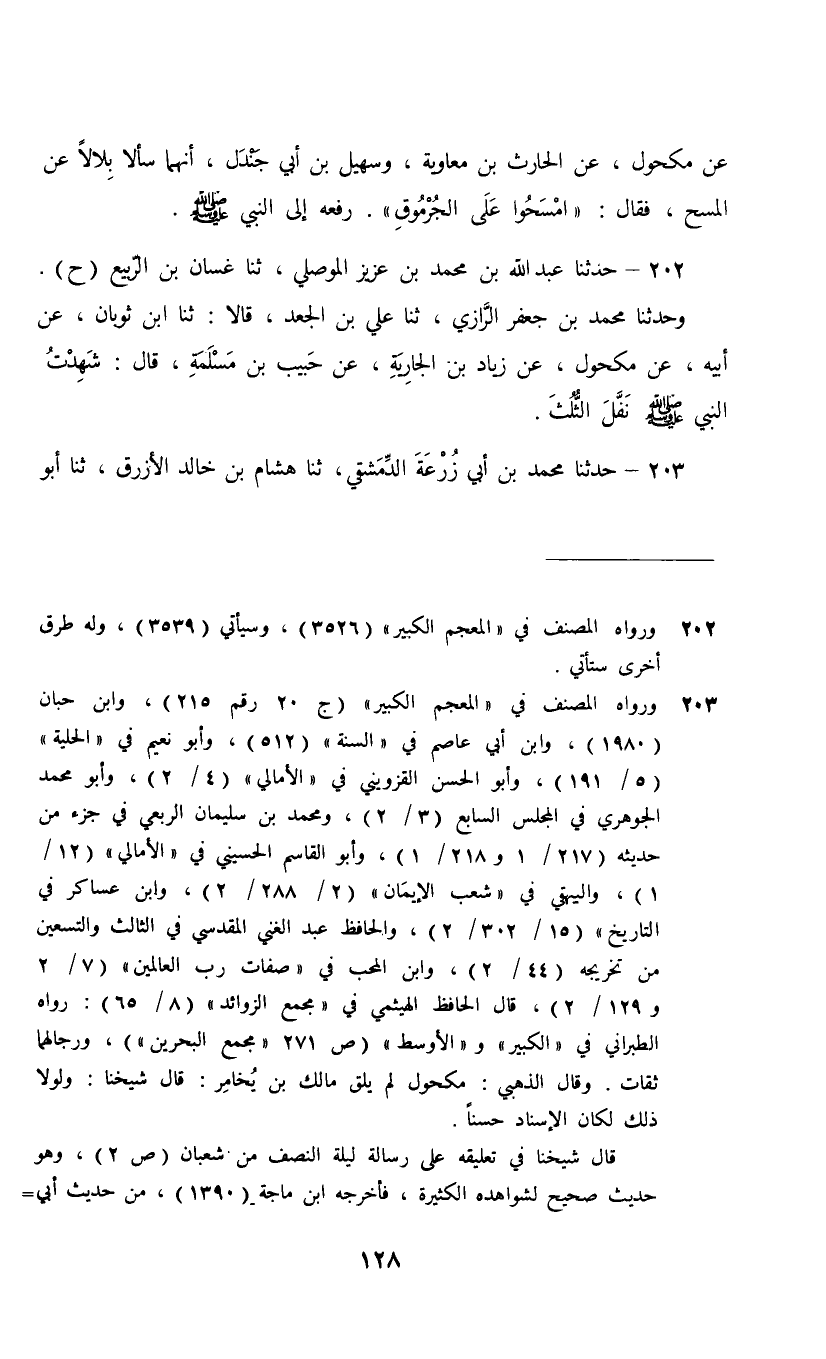 عن مكحول ، عن الحارث بن معاوية ، وسهيل بن أبي جَنْدَل ، أنهما سألا بِلالاً عن
المسح ، فقال : « امْسَحُوا عَلَى الجُرْمُوقِ» . رفعه إلى النبي ﷺ .
٢٠٢ – حدثنا عبد الله بن محمد بن عزيز الموصلي ، ثنا غسان بن الرَّبيع (ح) .
وحدثنا محمد بن جعفر الرَّازي ، ثنا علي بن الجعد ، قالا : ثنا ابن ثوبان ، عن
أبيه ، عن مكحول ، عن زياد بن الجارِيَةِ ، عن حَبيب بن مَسْلَمَةِ ، قال : شَهِدْتُ
النبي ﷺ نَفَّلَ الثُّلُثَ .
٢٠٣ – حدثنا محمد بن أبي زُرْعَةَ الدِّمَشقي ، ثنا هشام بن خالد الأزرق ، ثنا أبو
٢٠٢ ورواه المصنف في « المعجم الكبير» (٣٥٢٦) ، وسيأتي (٣٥٣٩) ، وله طرق
أخرى ستأتي .
٢٠٣ ورواه المصنف في « المعجم الكبير» (ج ٢٠ رقم ٢١٥) ، وابن حبان
(١٩٨٠) ، وابن أبي عاصم في « السنة » (٥١٢) ، وأبو نعيم في « الحلية »
(٥/ ١٩١) ، وأبو الحسن القزويني في « الأمالي» (٤/ ٢) ، وأبو محمد
الجوهري في المجلس السابع (٣/ ٢) ، ومحمد بن سليمان الربعي في جزء من
حديثه (٢١٧/ ١ و ٢١٨/ ١) ، وأبو القاسم الحسيني في « الأمالي» (١٢/
١) ، والبيهقي في « شعب الإيمَان» (٢/ ٢٨٨/ ٢) ، وابن عساكر في
التاريخ » (١٥/ ٣٠٢/ ٢) ، والحافظ عبد الغني المقدسي في الثالث والتسعين
من تخريجه (٤٤/ ٢) ، وابن المحب في « صفات رب العالمين » (٧/ ٢
و ١٢٩/ ٢) ، قال الحافظ الهيثمي في « مجمع الزوائد » (٨/ ٦٥) : رواه
الطبراني في « الكبير» و « الأوسط » (ص ٢٧١ « مجمع البحرين ») ، ورجالهما
ثقات . وقال الذهبي : مكحول لم يلق مالك بن يُخامِر : قال شيخنا : ولولا
ذلك لكان الإسناد حسناً .
قال شيخنا في تعليقه على رسالة ليلة النصف من شعبان (ص ٢) ، وهو
حديث صحيح لشواهده الكثيرة ، فأخرجه ابن ماجة (١٣٩٠) ، من حديث أبي=
١٢٨